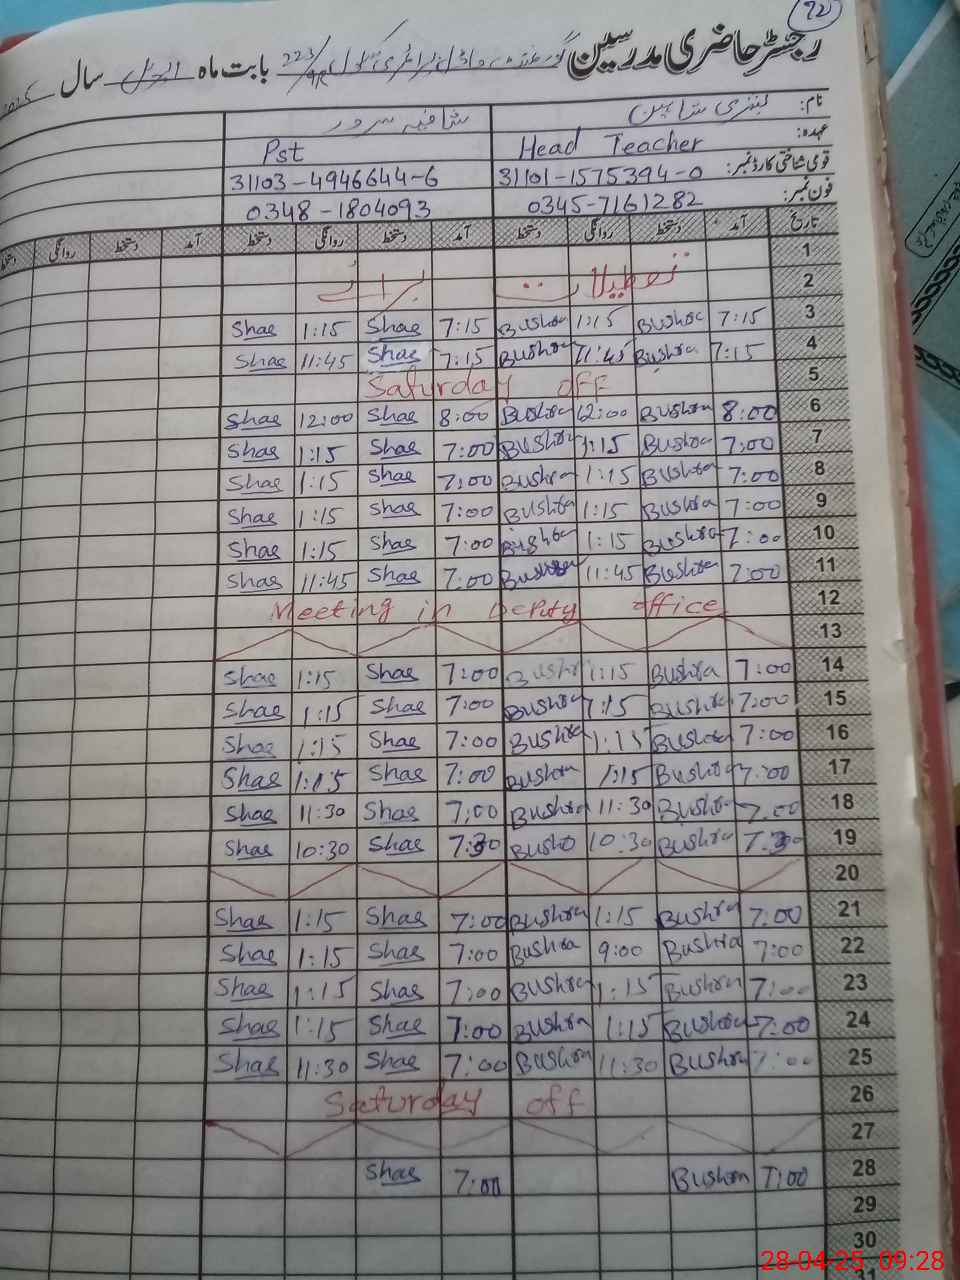 72
رجسٹر حاضری مدرسین گورنمنٹ ماڈل پرائمری سکول 223/9R بابت ماہ اپریل سال 2025
نام: بشریٰ شاہین شافیہ سرور
عہدہ: Head Teacher Pst
قومی شناختی کارڈ نمبر: 31101-1575394-0 31103-4946644-6
فون نمبر: 0345-7161282 0348-1804093
تاریخ آمد دستخط روانگی دستخط آمد دستخط روانگی دستخط آمد دستخط روانگی دستخط
1
2 تعطیلات برائے
3 7:15 Bushra 1:15 Bushra 7:15 Shae 1:15 Shae
4 7:15 Bushra 11:45 Bushra 7:15 Shae 11:45 Shae
5 Saturday off
6 8:00 Bushra 12:00 Bushra 8:00 Shae 12:00 Shae
7 7:00 Bushra 1:15 Bushra 7:00 Shae 1:15 Shae
8 7:00 Bushra 1:15 Bushra 7:00 Shae 1:15 Shae
9 7:00 Bushra 1:15 Bushra 7:00 Shae 1:15 Shae
10 7:00 Bushra 1:15 Bushra 7:00 Shae 1:15 Shae
11 7:00 Bushra 11:45 Bushra 7:00 Shae 11:45 Shae
12 Meeting in Deputy office
13
14 7:00 Bushra 1:15 Bushra 7:00 Shae 1:15 Shae
15 7:00 Bushra 1:15 Bushra 7:00 Shae 1:15 Shae
16 7:00 Bushra 1:15 Bushra 7:00 Shae 1:15 Shae
17 7:00 Bushra 1:15 Bushra 7:00 Shae 1:15 Shae
18 7:00 Bushra 11:30 Bushra 7:00 Shae 11:30 Shae
19 7:30 Bushra 10:30 Bushra 7:30 Shae 10:30 Shae
20
21 7:00 Bushra 1:15 Bushra 7:00 Shae 1:15 Shae
22 7:00 Bushra 9:00 Bushra 7:00 Shae 1:15 Shae
23 7:00 Bushra 1:15 Bushra 7:00 Shae 1:15 Shae
24 7:00 Bushra 1:15 Bushra 7:00 Shae 1:15 Shae
25 7:00 Bushra 11:30 Bushra 7:00 Shae 11:30 Shae
26 Saturday off
27
28 7:00 Bushra 7:00 Shae
29
30
31
28-04-25 09:28